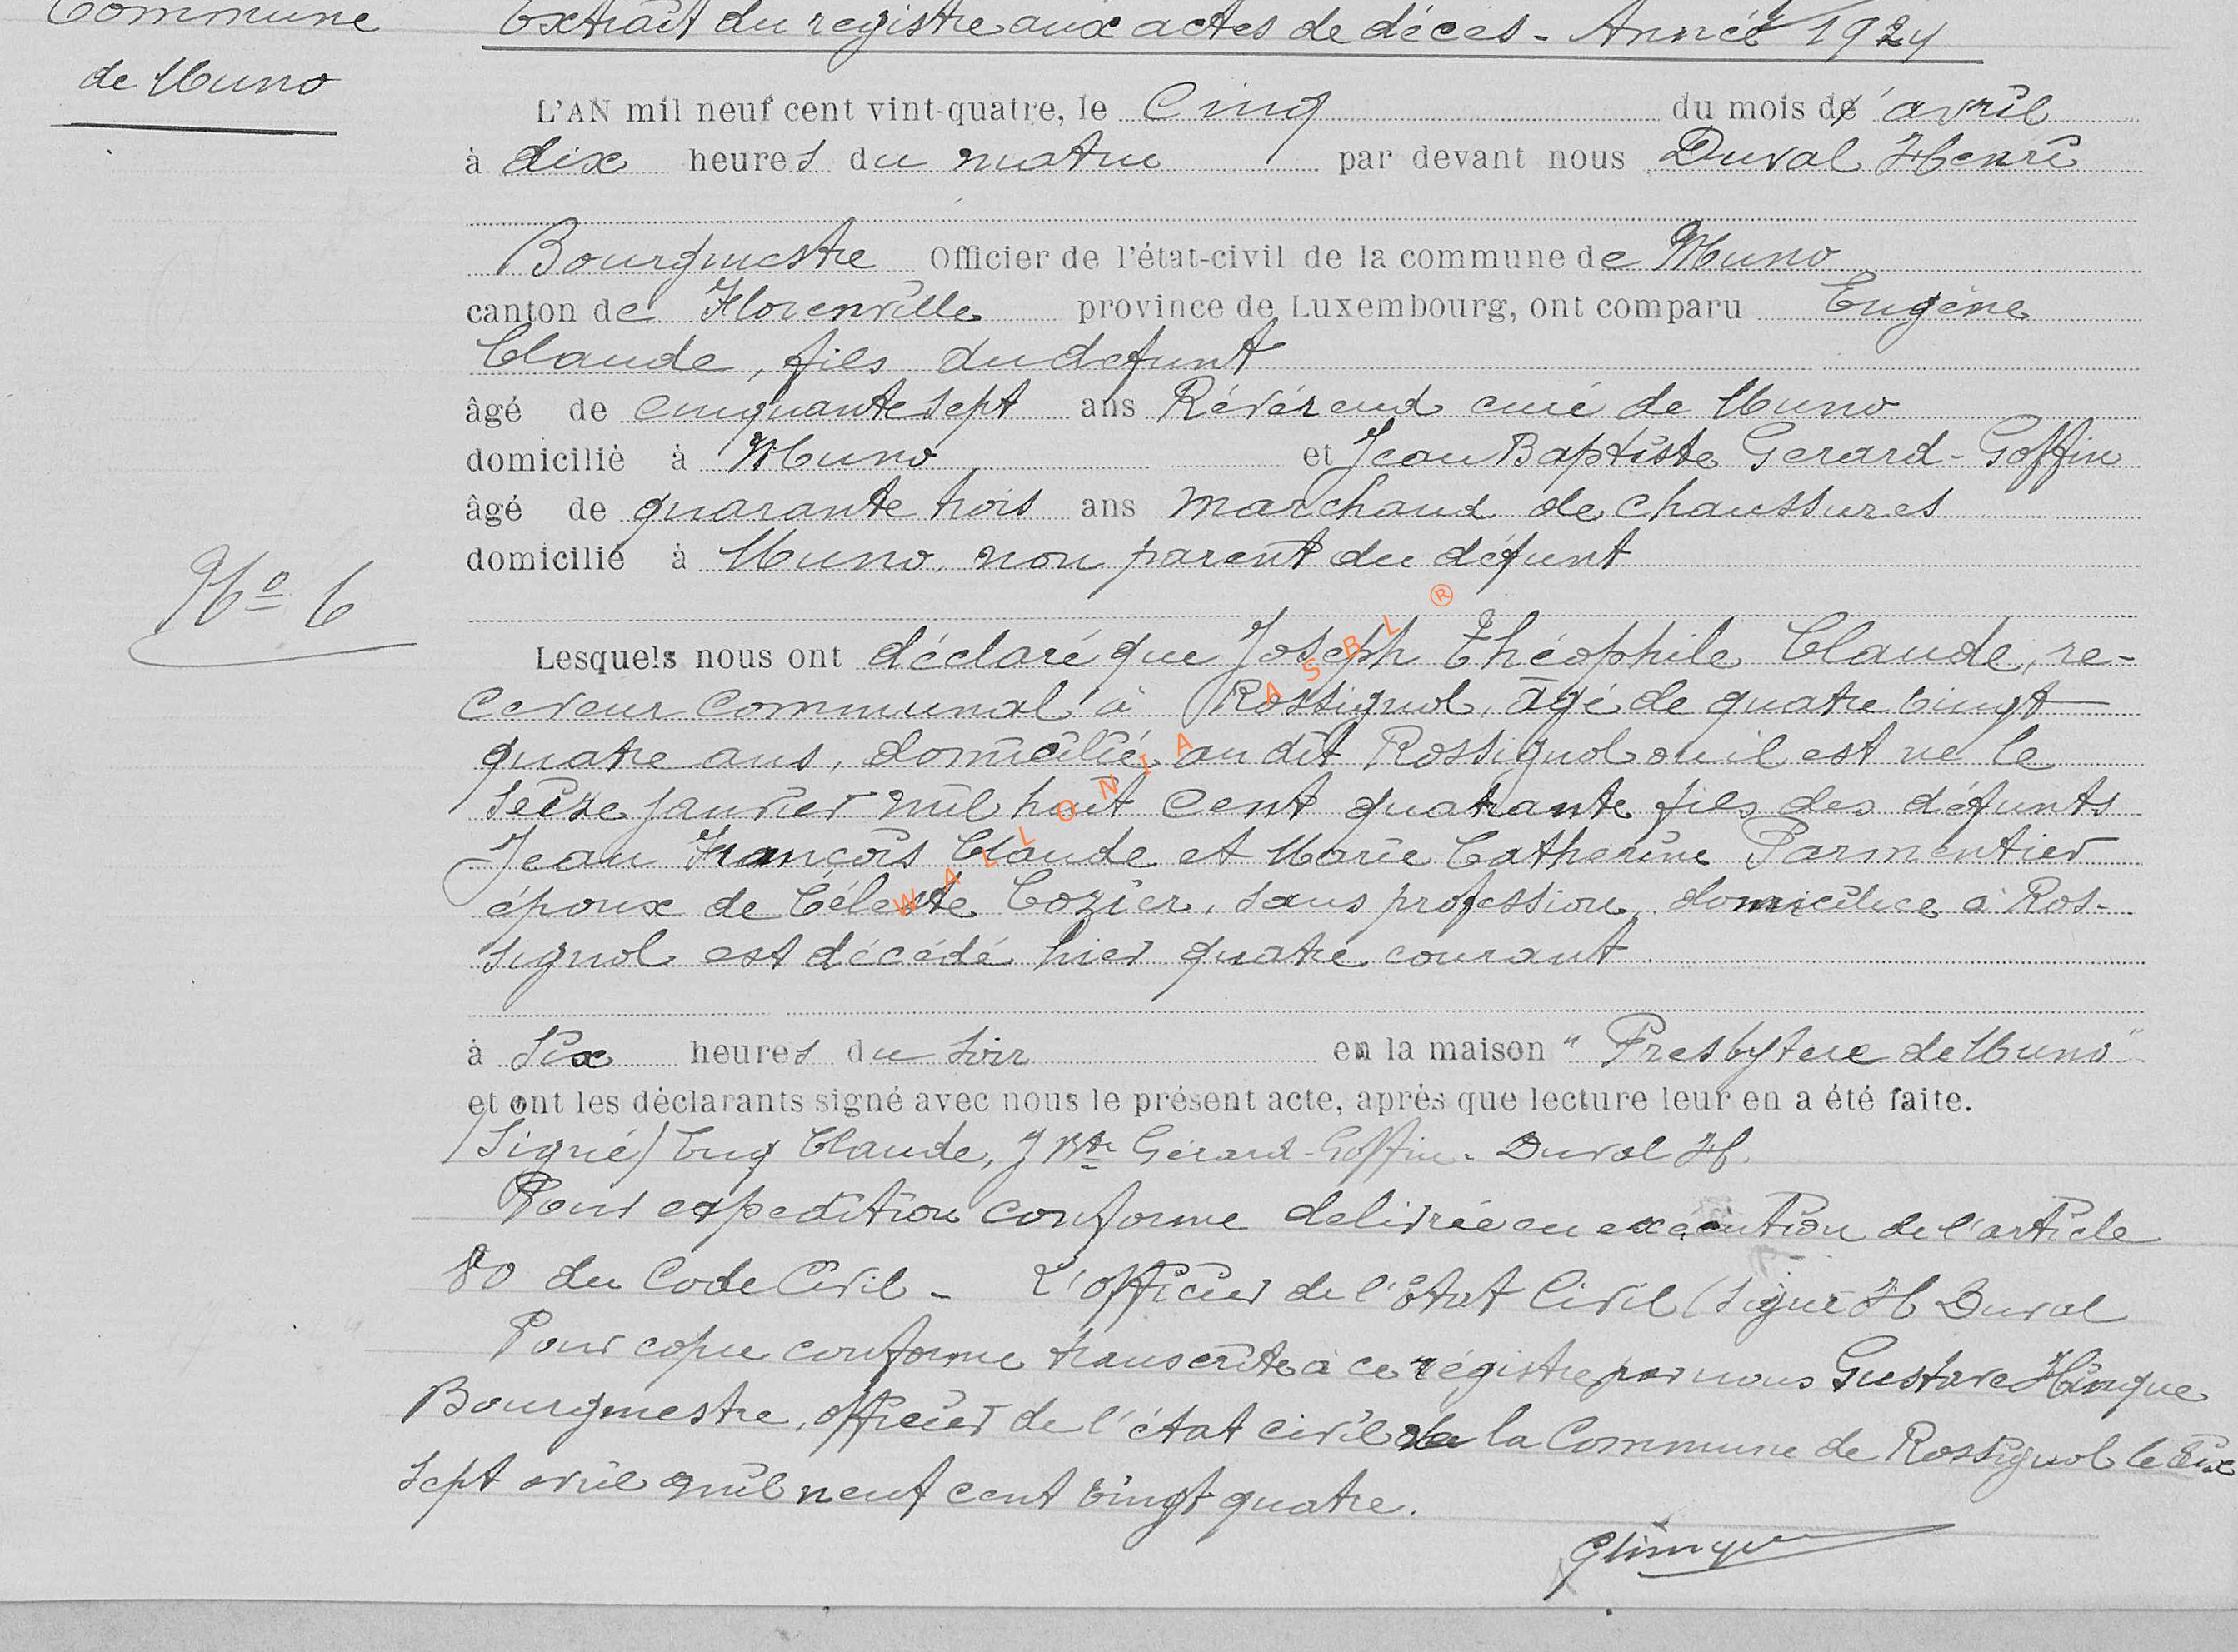 Commune
de Muno
Extrait du registre aux actes de décès - Année 1924
L'AN mil neuf cent vint-quatre, le Cinq du mois d'avril
à dix heures du matin par devant nous Duval Henri
Bourgmestre Officier de l'état-civil de la commune de Muno
canton de Florenville province de Luxembourg, ont comparu Eugène
Claude, fils du defunt
âgé de cinquante sept ans Révérend curé de Muno
domicilié à Muno et Jean Baptiste Gerard-Goffin
âgé de quarante trois ans marchand de chaussures
domicilié à Muno, non parent du défunt
No 6
Lesquels nous ont déclaré que Joseph Théophile Claude, re-
ceveur communal à Rossignol, âgé de quatre vingt
quatre ans, domicilié au dit Rossignol ou il est né le
seize janvier mil huit cent quarante fils des défunts
Jean François Claude et Marie Catherine Parmentier
époux de Céleste Cozier, sans profession, domiciliée à Ros-
signol est décédé hier quatre courant
à six heures du soir en la maison "Presbytere de Muno"
et ont les déclarants signé avec nous le présent acte, après que lecture leur en a été faite.
/Signé/ Eug Claude, J Bte Gérard-Goffin. Duval H.
Pour expedition conforme delivrée en exécution de l'article
80 du Code Civil - L'officier de l'Etat Civil (signé H Duval
Pour copie conforme transcrite à ce régistre par nous Gustave Hinque
Bourgmestre, officier de l'état civil de la Commune de Rossignol le dix
sept avril mil neuf cent vingt quatre.
GHinque
WALLONIA ASBL ®